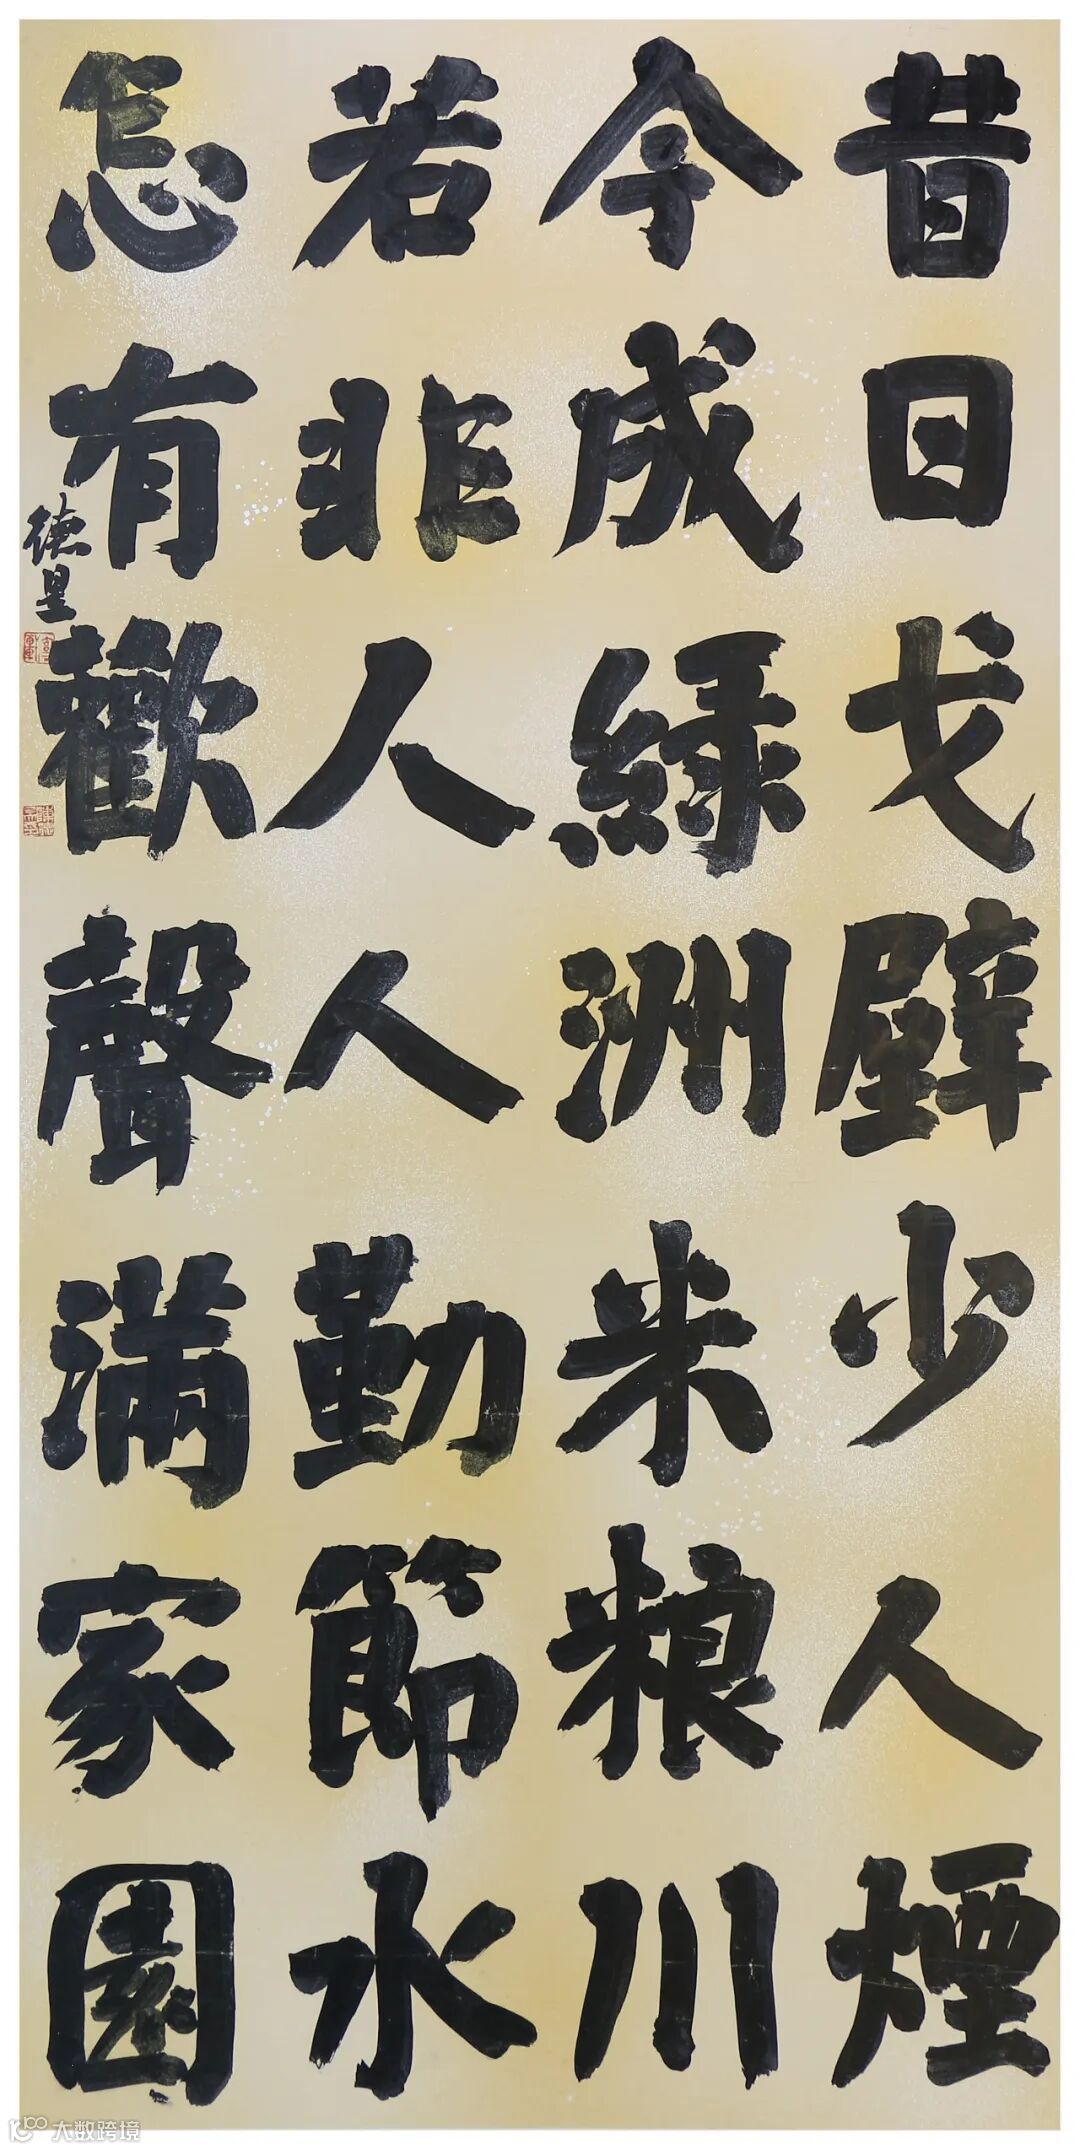 昔日戈壁少人煙
今成綠洲米粮川
若非人人勤節水
怎有歡聲滿家園
德星
大数跨境